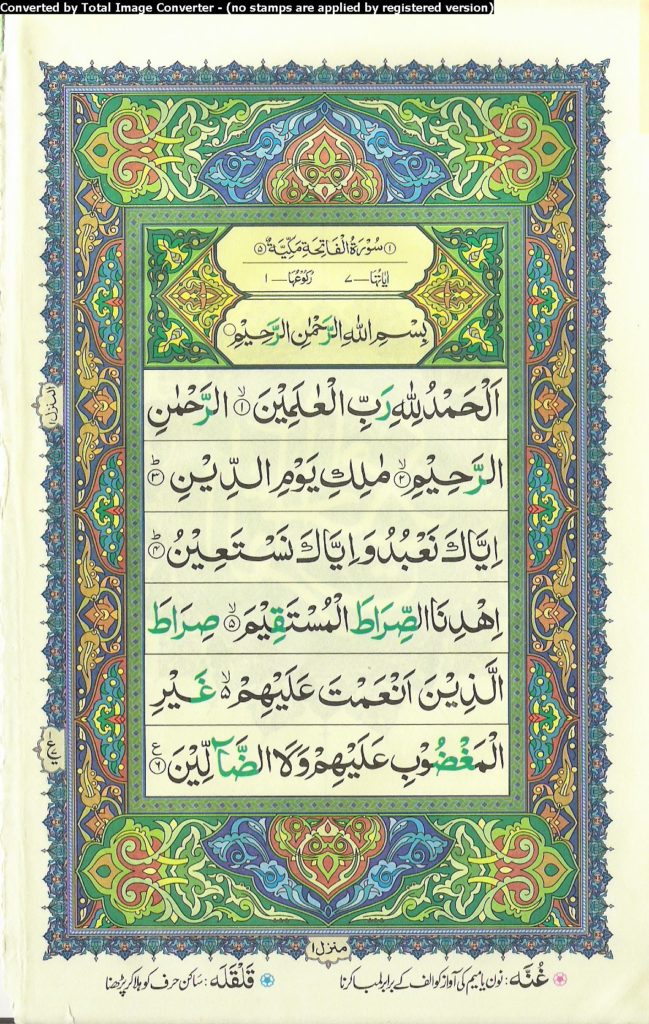 Converted by Total Image Converter - (no stamps are applied by registered version)
﴿١﴾ سُوْرَةُ الْفَاتِحَةِ مَكِّيَّةٌ ﴿٥﴾
اٰيَاتُهَا — ٧ رُكُوْعُهَا — ١
بِسْمِ اللّٰهِ الرَّحْمٰنِ الرَّحِيْمِ
اَلْحَمْدُ لِلّٰهِ رَبِّ الْعٰلَمِيْنَ ﴿١﴾ۙ الرَّحْمٰنِ
الرَّحِيْمِ ﴿٢﴾ۙ مٰلِكِ يَوْمِ الدِّيْنِ ﴿٣﴾ؕ
اِيَّاكَ نَعْبُدُ وَاِيَّاكَ نَسْتَعِيْنُ ﴿٤﴾ؕ
اِهْدِنَا الصِّرَاطَ الْمُسْتَقِيْمَ ﴿٥﴾ۙ صِرَاطَ
الَّذِيْنَ اَنْعَمْتَ عَلَيْهِمْ ۙ۵ غَيْرِ
الْمَغْضُوْبِ عَلَيْهِمْ وَلَا الضَّآلِّيْنَ ﴿٦﴾ع
المنزل ١
ع
منزل ١
غُنَّه: نون یا میم کی آواز کو الف کے برابر لمبا کرنا
قَلْقَلَه: ساکن حرف کو ہلا کر پڑھنا